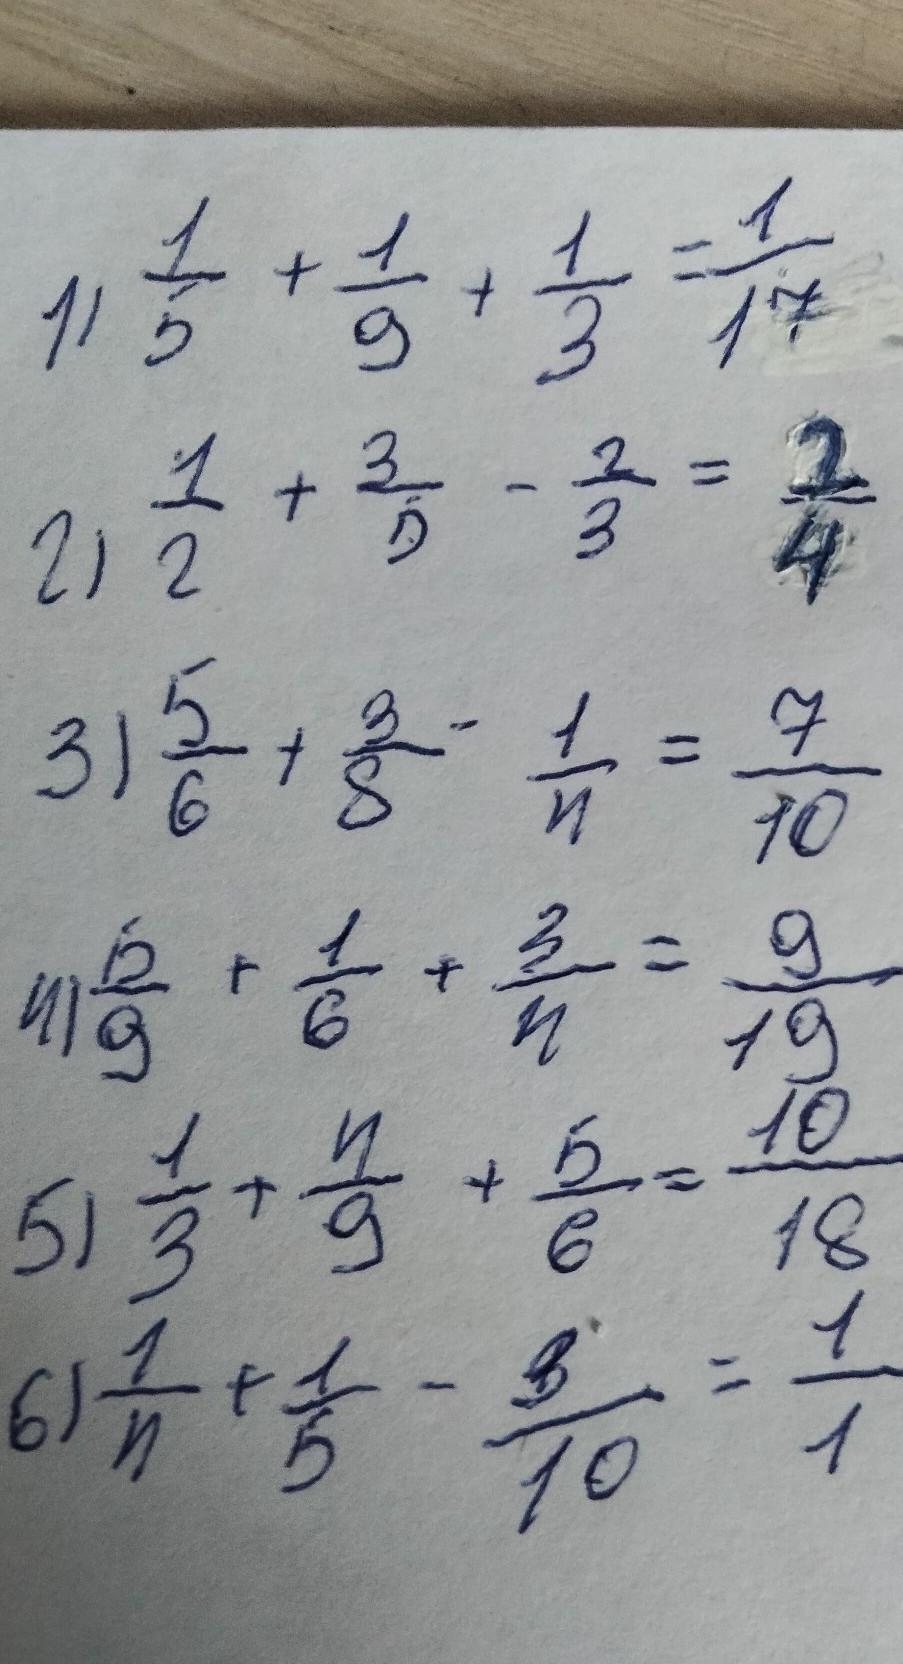 1) 1/5 + 1/9 + 1/3 = 1/17
2) 1/2 + 3/5 - 2/3 = 2/4
3) 5/6 + 3/8 - 1/4 = 7/10
4) 5/9 + 1/6 + 3/4 = 9/19
5) 1/3 + 4/9 + 5/6 = 10/18
6) 1/4 + 1/5 - 3/10 = 1/1